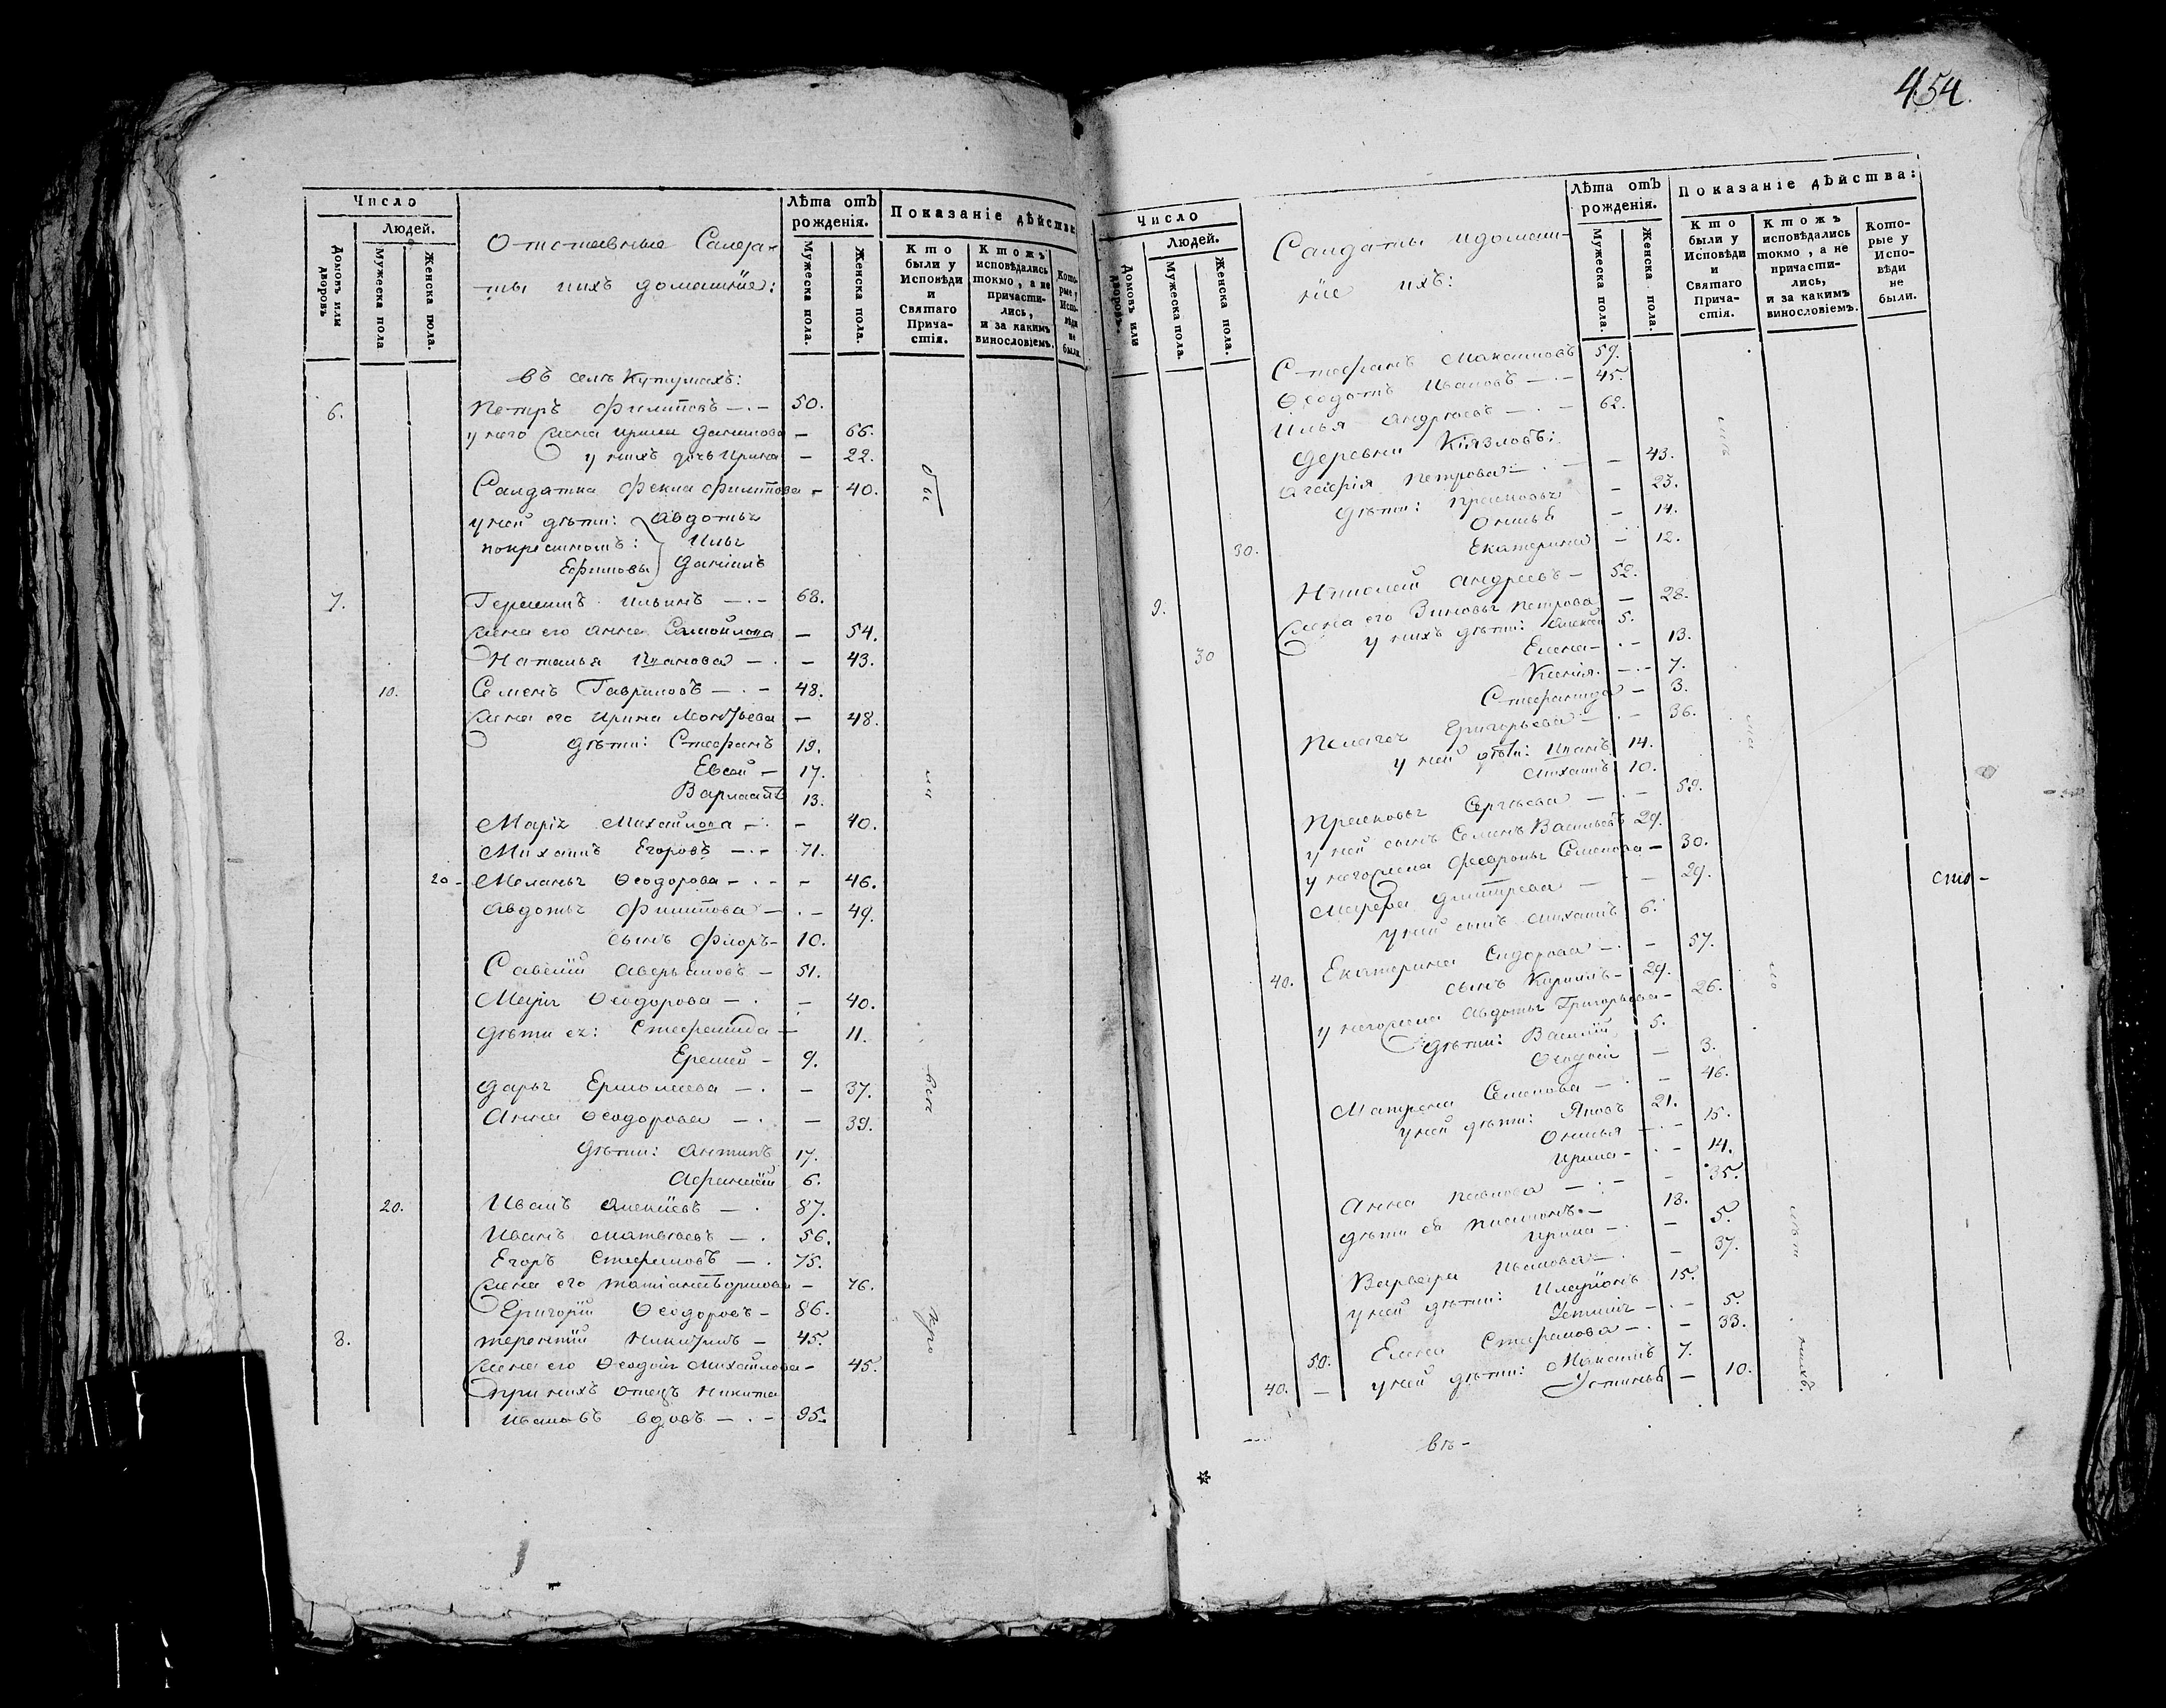 454.
Число
Людей.
Домовъ или дворовъ.
Мужеска пола.
Женска пола.
Отставные Салда-
ты ихъ домашніе:
Лѣта отъ рожденія.
Мужеска пола.
Женска пола.
Показаніе дѣйства
Кто были у Исповѣди и Святаго Прича- стія.
Ктожъ исповѣдались токмо, а не причасти- лись, и за какимъ винословіемъ.
Кото- рые у Испо- вѣди не были.
въ селѣ
6. Петръ Филиповъ — 50.
у него жена Ирина Данилова — 66.
у нихъ дочь Ирина — 22.
Салдатка Фекла Филипова — 40.
у ней дѣти: Авдотья
Илья
Ефимовы Даніилъ
7. Герасимъ Ильинъ — 68.
жена его Анна Самойлова — 54.
Наталья Иванова — 43.
10. Семенъ Гавриловъ — 48.
жена его Ирина Леонтьева — 48.
дѣти: Стефанъ 19.
Евсей — 17.
Варлаамъ 13.
Марія Михайлова — 40.
Михаилъ Егоровъ — 71.
20 - Меланья Ѳеодорова — 46.
Авдотья Филипова — 49.
сынъ Флоръ — 10.
Савелій Аверьяновъ — 51.
Марія Ѳеодорова — 40.
дѣти ея: Стефанида — 11.
Еремей — 9.
Дарья Ермолаева — 37.
Анна Ѳеодорова — 39.
дѣти: Антипъ 17.
Афанасій 6.
20. Иванъ Алексѣевъ — 87.
Иванъ Матвѣевъ — 56.
Егоръ Стефановъ — 75.
жена его — 76.
Григорій Ѳеодоровъ — 86.
8. Терентій Никитинъ — 45.
жена его Ѳеодосія Михайлова — 45.
при нихъ отецъ Никита
Ивановъ вдовъ — 95.
Число
Людей.
Домовъ или дворовъ.
Мужеска пола.
Женска пола.
Салдаты и домаш-
ніе ихъ:
Лѣта отъ рожденія.
Мужеска пола.
Женска пола.
Показаніе дѣйства:
Кто были у Исповѣди и Святаго Прича- стія.
Ктожъ исповѣдались токмо, а не причасти- лись, и за какимъ винословіемъ.
Кото- рые у Испо- вѣди не были.
Стефанъ Максимовъ 59.
Ѳеодотъ Ивановъ — 45.
Илья Андреевъ — 62.
деревни
Петрова — 43.
дѣти: Прасковья — 23.
— 14.
30. Екатерина — 12.
9. Николай Андреевъ — 52.
жена его Зиновья Петрова — 28.
30 у нихъ дѣти: Алексей 5.
Елена — 13.
Ксенія — 7.
Стефанида — 3.
Пелагея Григорьева — 36.
у ней дѣти: Иванъ 14.
Михаилъ 10.
Прасковья Сергѣева — 59.
у ней сынъ Семенъ Васильевъ 29.
у него жена Февронья Семенова — 30.
Марфа Дмитрева — 29.
у ней сынъ Михаилъ 6.
40. Екатерина Сидорова — 57.
сынъ Кирилъ — 29.
у него жена Авдотья Григорьева — 26.
дѣти: Василій 5.
Ѳеодосія — 3.
Матрена Семенова — 46.
у ней дѣти: Яковъ 21.
— 15.
Ирина — 14.
Анна Павлова — 35.
дѣти ея — 18.
Ирина — 5.
Варвара Иванова — 37.
у ней дѣти: Иларіонъ 15.
Устинія — 5.
50. Елена Стефанова — 33.
у ней дѣти: Максимъ 7.
40. — Устинья — 10.
въ-